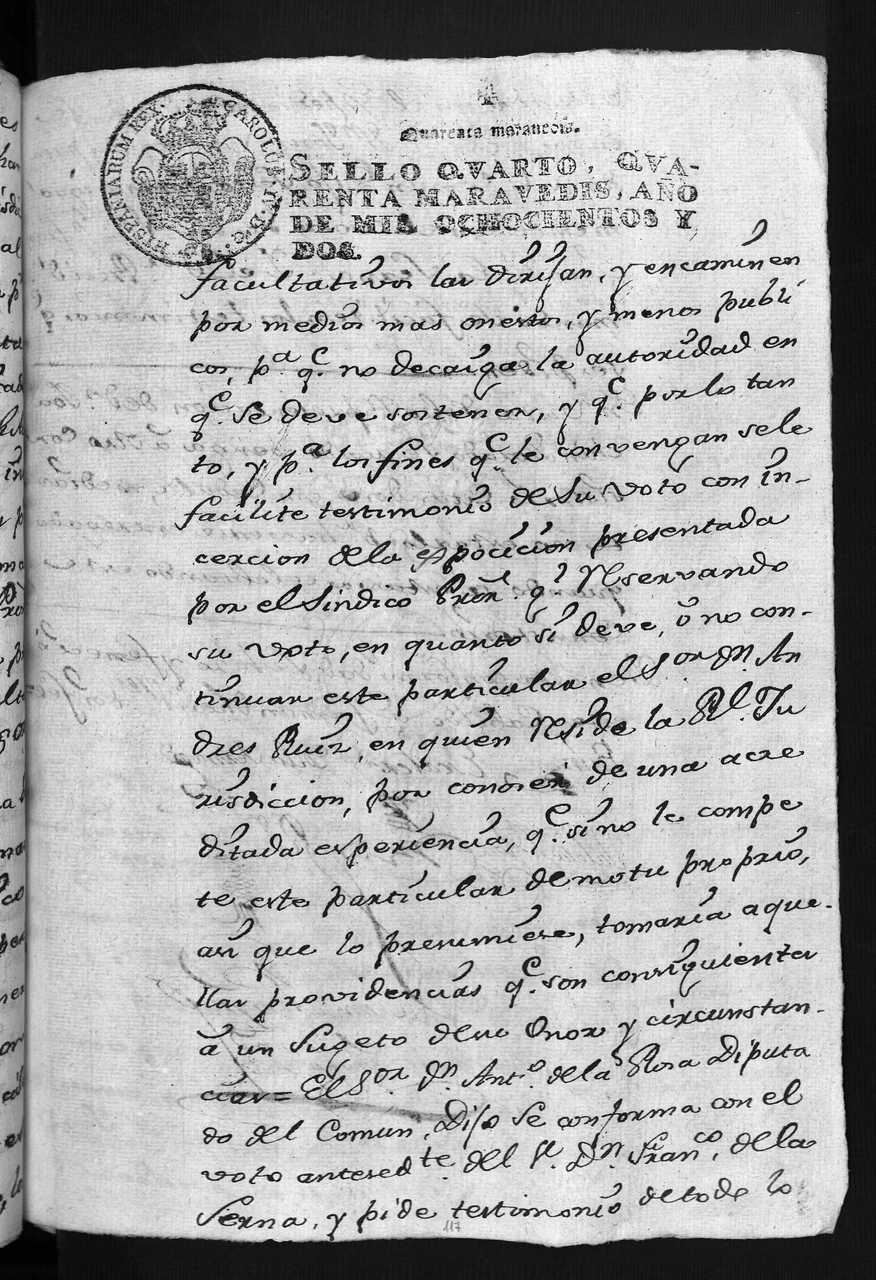 HISPANIARUM REX. CAROLUS IV D. G.
Quarenta maravedis.
SELLO QVARTO, QVA-
RENTA MARAVEDIS, AÑO
DE MIL OCHOCIENTOS Y
DOS.
facultativos las dirijan, y encaminen
por medios mas onestos, y menos publi
cos, pª qᵉ no decaiga la autoridad en
qᵉ se deve sostener, y qᵉ por lo tan
to, y pª los fines qᵉ le convengan sele
facilite testimonio de su voto con in-
cercion dela esposicion presentada
por el Sindico Prorˡ. qᵉ reservando
su voto, en quanto si deve, o no con-
tinuar este particular el Sor Dn An
dres Ruiz, en quien reside la Rˡ. Ju
risdiccion, por conoser de una acre
ditada esperiencia, qᵉ si no le compe
te este particular de motu proprio,
asi que lo presumiese, tomaria aque-
llas providencias qᵉ son consiguientes
a un Sugeto de su Onor y circunstan-
cias = El Sor Dn Antº dela Rosa Diputa
do del Comun, Dijo se conforma con el
voto antesedte. del Sr. Dn Francº. dela
Serna, y pide testimonio de todo lo
117